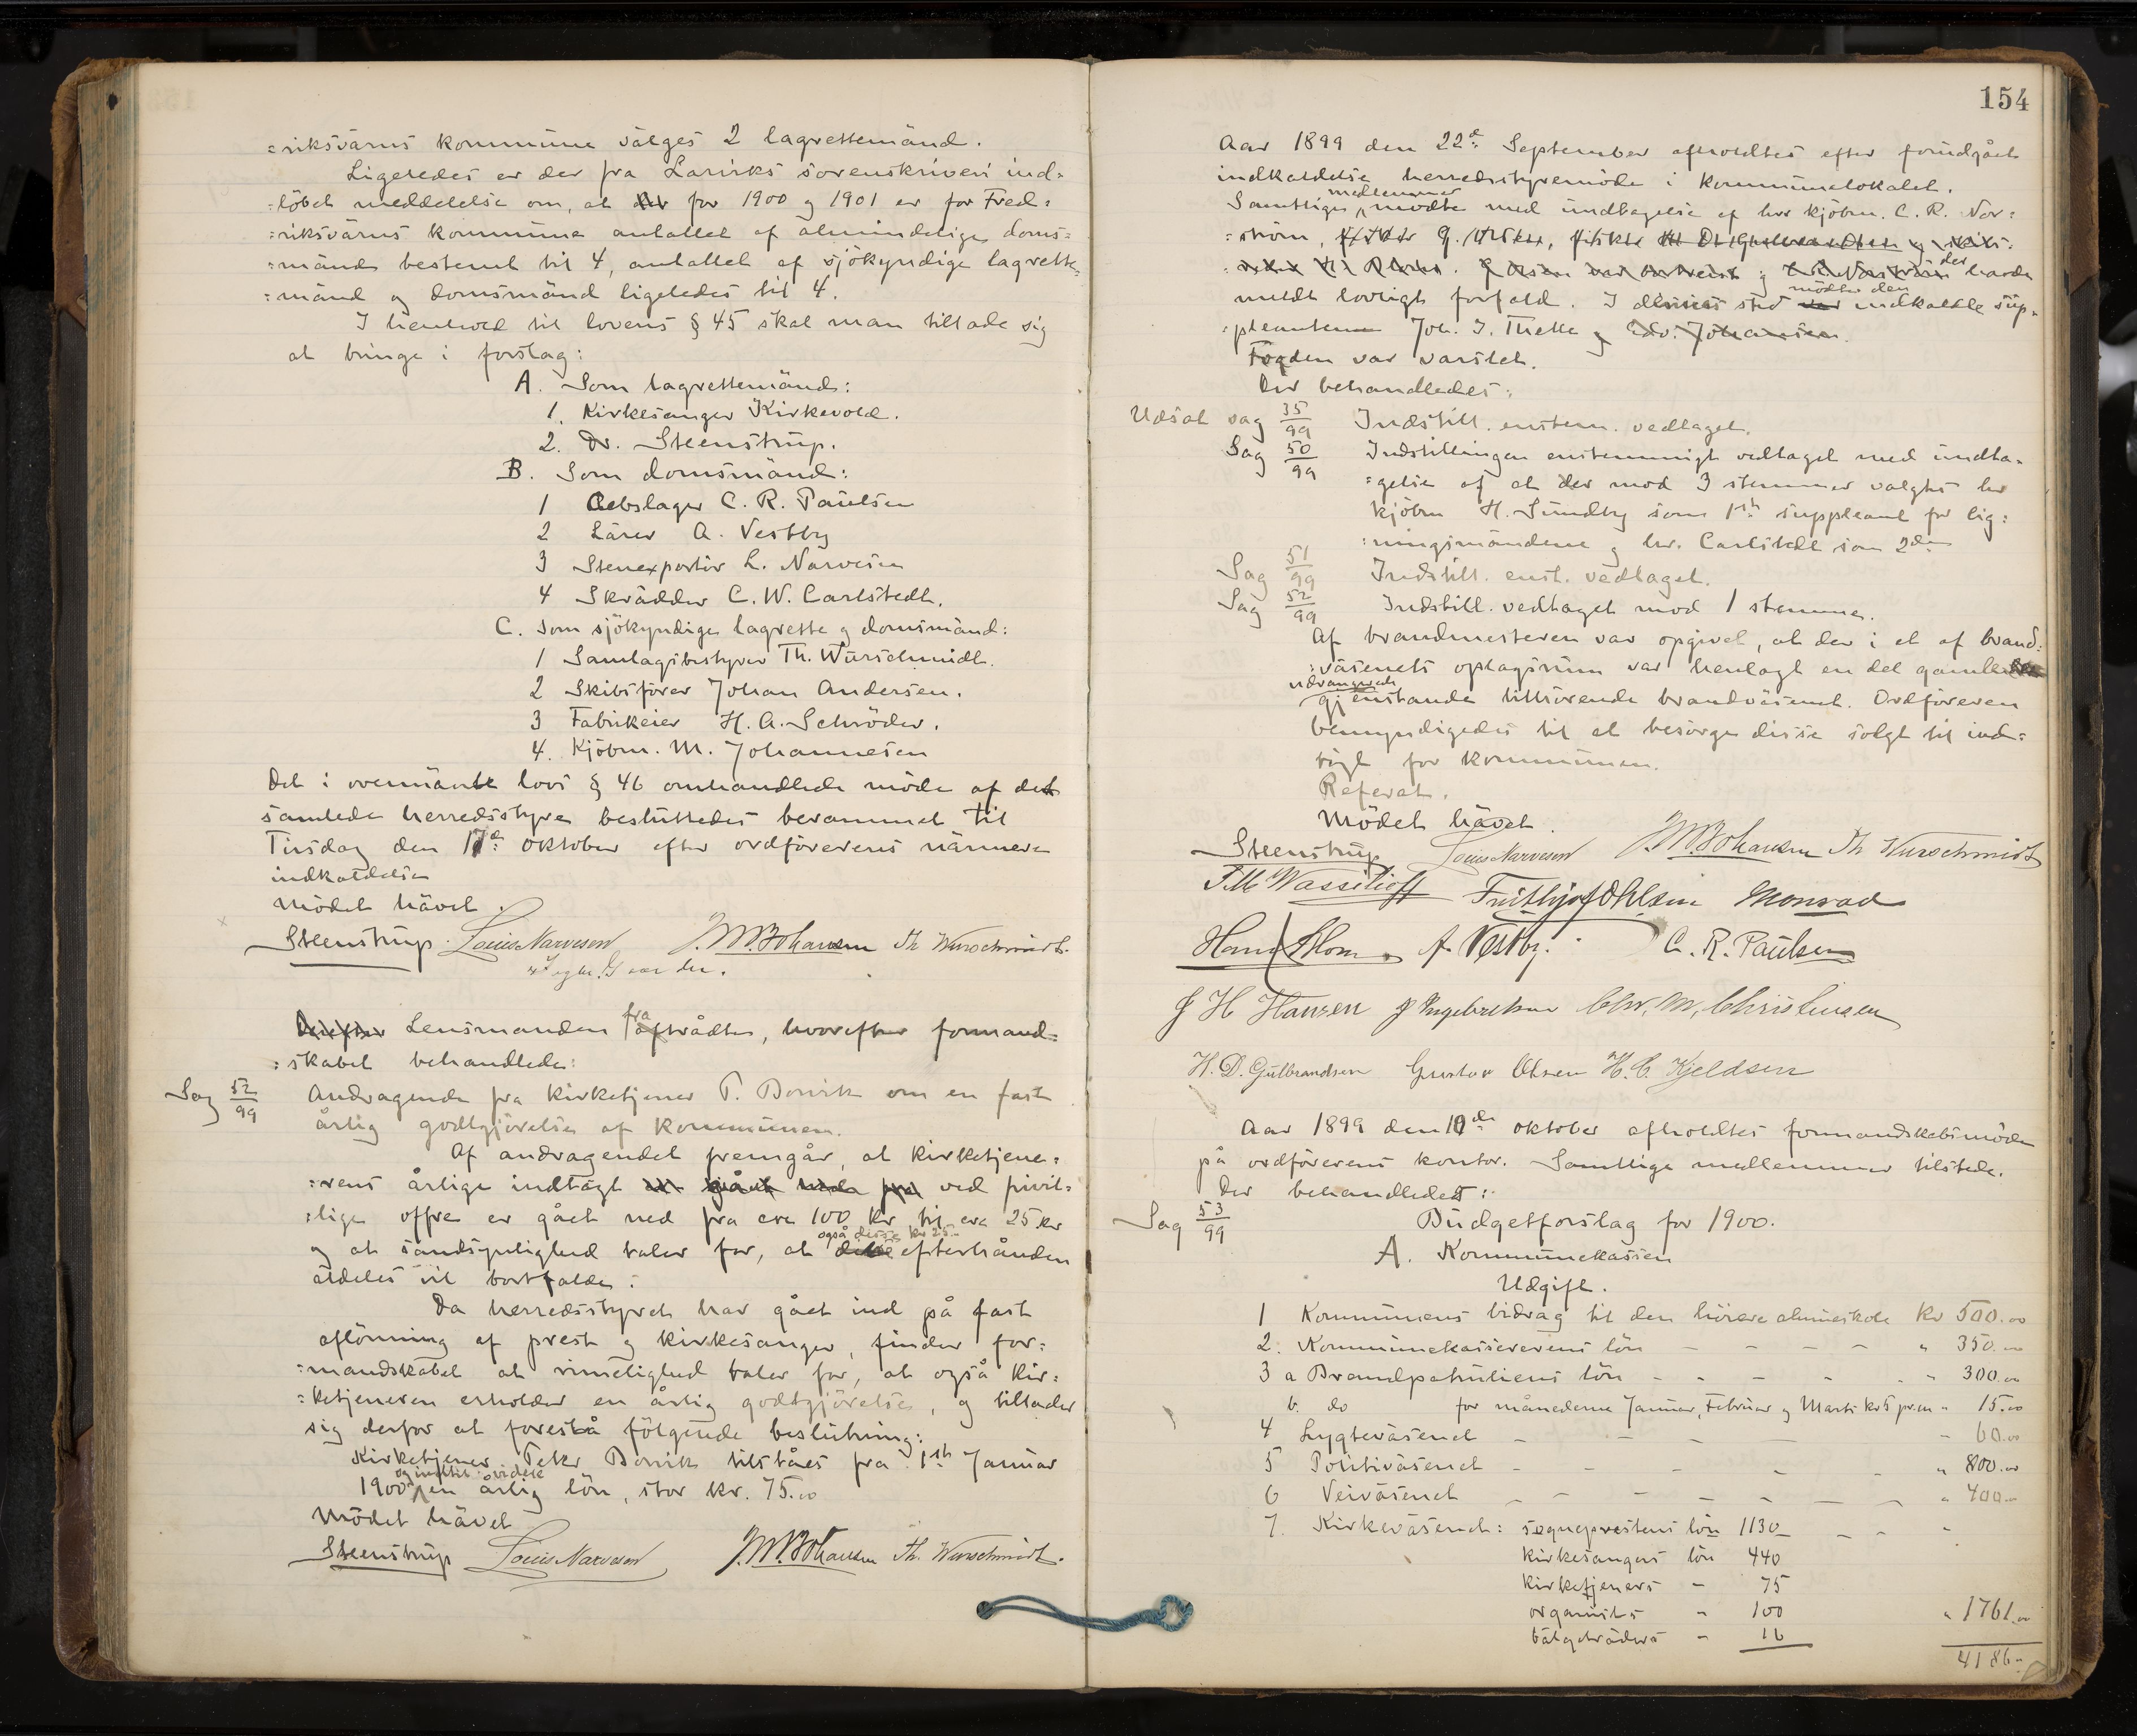 =riksværns kommune vælges 2 lagrettemænd.
Ligeledes er der fra Larviks sorenskriveri ind=
=löbet meddelelse om, at der for 1900 og 1901 er for Fred=
=riksværns kommune antallet af almindelige doms=
=mænd bestemt til 4, antallet af sjökyndige lagrette=
=mænd og domsmænd ligeledes til 4.
I henhold til lovens § 45 skal man tillade sig
at bringe i forslag:
A. Som lagrettemænd:
1. Kirkesanger Kirkevold.
2. Dr. Steenstrup.
B. Som domsmænd:
1 Rebslager C. R. Paulsen
2 Lærer A. Vestby
3 Stenexportör L. Narvesen
4 Skrædder C. W. Carlstedt.
C. Som sjökyndige lagrette og domsmænd:
1 Samlagsbestyrer Th. Wurschmidt.
2 Skibsförer Johan Andersen.
3 Fabrikeier H. A. Schröder.
4. Kjöbm. M. Johannesen
Det i ovennævnte lovs § 46 omhandlede möde af det
samlede herredsstyre besluttedes berammet til
Tirsdag den 17de oktober efter ordförerens nærmere
indkaldelse
Mödet hævet.
Steenstrup. Louis Narvesen J. M. Johansen Th Wurschmidt.
Derefter Lensmanden fratrådte, hvorefter formand=
=skabet behandlede:
Sag 52/99 Andragende fra kirketjener P. Borvik om en fast
årlig godtgjörelse af kommunen.
Af andragendet fremgår, at kirketjene=
=rens årlige indtægt ved frivil=
=lige offre er gået ned fra cra 100 kr til cra 25 kr
og at sandsynlighed taler for, at også disse kr 25.- efterhånden
aldeles vil bortfalde.
Da herredsstyret har gået ind på fast
aflönning af prest og kirkesanger, finder for=
=mandskabet at rimelighed taler for, at også kir=
=ketjeneren erholder en årlig godtgjörelse, og tillader
sig derfor at foreslå fölgende beslutning:
Kirketjener Peter Borvik tilståes fra 1ste Januar
1900 og indtil videre en årlig lön, stor kr. 75.00
Mödet hævet
Steenstrup Louis Narvesen J. M. Johansen Th. Wurschmidt.
154
Aar 1899 den 22de September afholdtes efter forudgået
indkaldelse herredsstyremöde i kommunelokalet.
Samtlige medlemmer mödte med undtagelse af hr kjöbm. C. R. Nor=
=ström, der havde
meldt lovligt forfald. I dennes sted mödte den indkaldte sup=
=pleant Joh. I. Thelle og Edv. Johansen.
Fogden var varslet.
Der behandledes:
Udsat sag 35/99 Indstill. enstem. vedtaget.
Sag 50/99 Indstillingen enstemmigt vedtaget med undta=
=gelse af at der mod 3 stemmer valgtes hr
kjöbm H. Sundby som 1ste suppleant for lig=
=ningsmændene og hr. Carlstedt som 2den
Sag 51/99 Indstill. enst. vedtaget.
Sag 52/99 Indstill. vedtaget mod 1 stemme.
Af brandmesteren var opgivet, at der i et af brand=
=væsenets oplagsrum var henlagt en del gamle
udrangerede gjenstande tilhörende brandvæsenet. Ordföreren
bemyndigedes til at besörge disse solgt til ind=
tægt for kommunen.
Referat.
Mödet hævet.
Steenstrup Louis Narvesen J. M. Johansen Th Wurschmidt
Wassilioff Frithjof Ohlsen Monrad
Hans Blom. A. Vestby. C. R. Paulsen
J H Hansen J Ingebretsen Chr. M. Christensen
H. D. Gulbrandsen Gustav Olsen H. C. Kjeldsen
Aar 1899 den 10de oktober afholdtes formandskabsmöde
på ordförerens kontor. Samtlige medlemmer tilstede.
Der behandledes:
Sag 53/99 Budgetforslag for 1900.
A. Kommunekassen
Udgift.
1 Kommunens bidrag til den höiere almueskole kr 500.00
2. Kommunekassererens lön - - - - " 350.00
3 a Brandpatruliens lön - - - - - " 300.00
b. do for månederne Januar, Februar og Marts kr 5 pr.m " 15.00
4 Lygtevæsenet - - - - " 60.00
5 Politivæsenet - - - - - " 800.00
6 Veivæsenet - - - - - - - " 400.00
7. Kirkevæsenet: sogneprestens lön 1130 - - -
kirkesangers lön 440
kirketjeners - 75
organists - 100 " 1761.00
bælgetræders - 16
4186.-